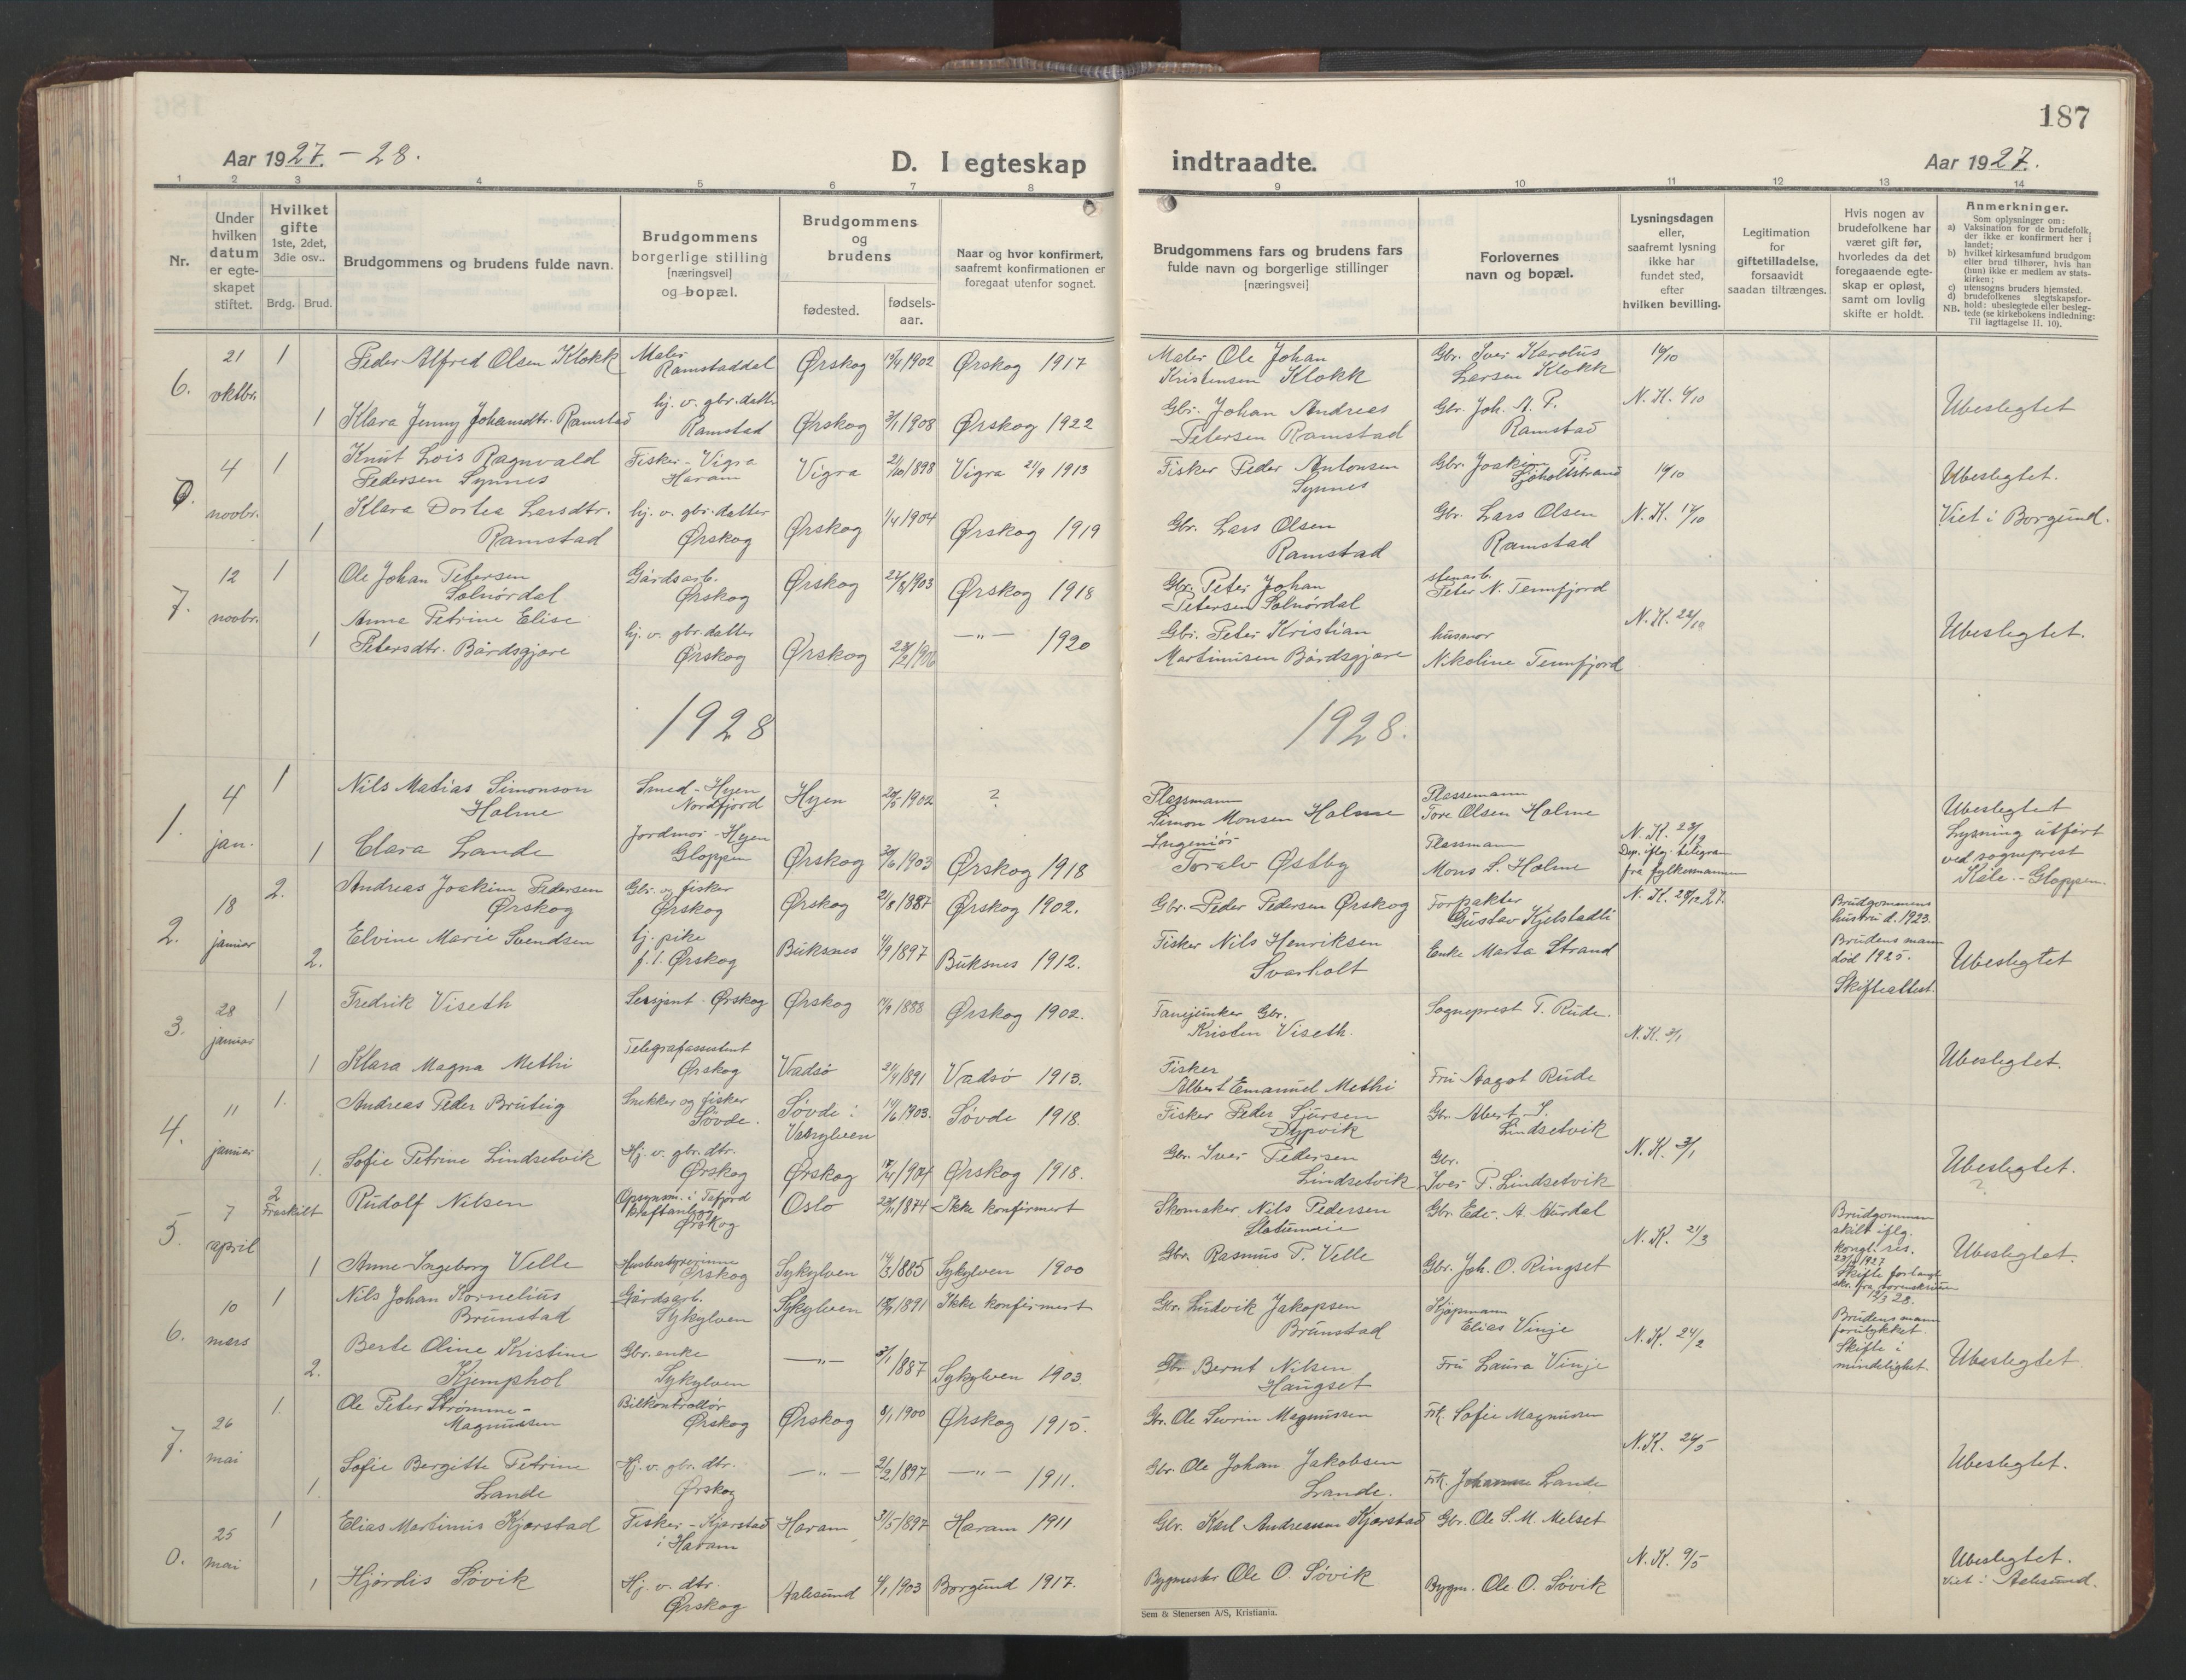 187
Aar 1927. – 28.
D. I egteskap
indtraadte.
Aar 1927.
1 2 3 4 5 6 7 8 9 10 11 12 13 14
Nr.
Under hvilken datum er egte-skapet stiftet.
Hvilket gifte 1ste, 2det, 3die osv..
Brdg. Brud.
Brudgommens og brudens fulde navn.
Brudgommens borgerlige stilling [næringsvei] og bopæl.
Brudgommens og brudens
fødested.
fødsels-aar.
Naar og hvor konfirmert, saafremt konfirmationen er foregaat utenfor sognet.
Brudgommens fars og brudens fars fulde navn og borgerlige stillinger [næringsvei]
Forlovernes navn og bopæl.
Lysningsdagen eller, saafremt lysning ikke har fundet sted, efter hvilken bevilling.
Legitimation for giftetilladelse, forsaavidt saadan tiltrænges.
Hvis nogen av brudefolkene har været gift før, hvorledes da det foregaaende egte-skap er opløst, samt om lovlig skifte er holdt.
Anmerkninger.
Som oplysninger om:
a) Vaksination for de brudefolk, der ikke er konfirmert her i landet;
b) hvilket kirkesamfund brudgom eller brud tilhører, hvis han (hun) ikke er medlem av stats-kirken;
c) utensogns bruders hjemsted.
d) brudefolkenes slegtskapsfor-hold: ubeslegtede eller besleg-tede (se kirkebokens indledning:
NB. Til iagttagelse II. 10).
6. 21 oktbr. 1 Peder Alfred Olsen Klokk Maler Ramstaddal Ørskog 1902 Ørskog 1917 Maler Ole Johan Kristensen Klokk Gbr. Iver Karolus Larsen Klokk
1 Klara Jenny Johansdtr. Ramstad hj. v. gbr. datter Ramstad Ørskog 3/1 1908 Ørskog 1922 Gbr. Johan Andreas Petersen Ramstad Gbr. Joh. A. P. Ramstad N. K. Ubeslegtet
0. 4 novbr. 1 Knut Lois Ragnvald Pedersen Synnes Fisker - Vigra Haram Vigra 1898 Vigra 21/9 1913 Fisker Peder Antonsen Synnes Gbr. Joakim P. Sjøholtstrand Ubeslegtet.
1 Klara Dortea Larsdtr. Ramstad hj. v. gbr. datter Ørskog Ørskog 1/4 1904 Ørskog 1919 Gbr. Lars Olsen Ramstad Gbr. Lars Olsen Ramstad N. K. 17/10 Viet i Borgund.
7. 12 novbr. 1 Ole Johan Petersen Solnørdal Gårdsarb. Ørskog Ørskog 1903 Ørskog 1918 Gbr. Peter Johan Petersen Solnørdal stenarb. Peter N. Tennfjord
1 Anna Petrine Elise Petersdtr. Bårdsgjære hj. v. gbr. datter Ørskog Ørskog 1906 — " — 1920 Gbr. Peter Kristian Martinusen Bårdsgjære husmor Nikoline Tennfjord N. K. 22/10 Ubeslegtet.
1928
1928.
1. 4 jan. 1 Nils Matias Simonson Holme Smed - Hyen Nordfjord Hyen 1902 ? Plassmann Simon Monsen Holme Plassemann Tore Olsen Holme
1 Clara Lande Jordmor - Hyen Gloppen Ørskog 1903 Ørskog 1918 Ingeniør Toralv Østby Plassmann Mons S. Holme N. K. 23/12 Dep. iflg. telegram fra fylkesmannen Ubeslegtet Lysning utført ved sogneprest Kåle - Gloppen.
2. 18 januar 2. Andreas Joakim Pedersen Ørskog Gbr. og fisker Ørskog Ørskog 2/8 1887 Ørskog 1902. Gbr. Peder Pedersen Ørskog Forpakter Gustav Kjelstadli N. K. 28/12 27. Brudgommens hustru d. 1923.
2. Elvine Marie Svendsen hj. pike f. t. Ørskog Buksnes 1897 Buksnes 1912. Fisker Nils Henriksen Svarholt Enke Marta Strand Brudens mann død 1925. Skifteattest. Ubeslegtet
3. 28 januar 1 Fredrik Viseth Sersjant - Ørskog Ørskog 1888 Ørskog 1902. Fanejunker Gbr. Kristen Viseth. Sogneprest T. Rude.
1 Klara Magna Methi Telegrafassistent Ørskog Vadsø 1891 Vadsø 1913. Fisker Albert Emanuel Methi Fru Aagot Rude N. K. 3/1 Ubeslegtet.
4. 11 januar 1. Andreas Peder Brutig Snekker og fisker Søvde. Søvde i Vanylven 1903. Søvde 1918. Fisker Peder Sjursen Dypvik Gbr. Albert I. Lindsetvik
1. Sofie Petrine Lindsetvik Hj. v. gbr. dtr. Ørskog Ørskog 1904 Ørskog 1918. Gbr. Iver Pedersen Lindsetvik Gbr. Iver P. Lindsetvik N. K. 3/1 Ubeslegtet. ?
5. 7 april 2 Fraskilt Rudolf Nilsen Opsynsm. i Tafjord kraftanlegg Ørskog Oslo 1874 Ikke konfirmert Skomaker Nils Pedersen Gbr. Edv. A. Aurdal Brudgommen skilt iflg. kongl. res. 1927
1 Anne Ingeborg Velle Husbestyrerinne Ørskog Sykylven 1885 Sykylven 1900 Gbr. Rasmus P. Velle Gbr. Joh. O. Ringset N. K. 21/3 12/3 28. Ubeslegtet.
6. 10 mars 1 Nils Johan Kornelius Brunstad Gårdsarb. Sykylven Sykylven 1891 Ikke konfirmert Gbr. Ludvik Jakopsen Brunstad Kjøpmann Elias Vinje
2. Berte Oline Kristine Kjemphol Gbr. enke Sykylven — " — 1887 Sykylven 1903. Gbr Bernt Nilsen Haugset Fru Laura Vinje N. K. 24/2 Brudens mann forulykket. Skifte i mindelighet. Ubeslegtet.
7. 26 mai 1. Ole Peter Strømme - Magnussen Bilkontrollør Ørskog Ørskog 1900 Ørskog 1915. Gbr. Ole Severin Magnussen Frk. Sofie Magnussen
1. Sofie Bergitte Petrine Lande Hj. v. gbr. dtr. Ørskog — " — 1897 — " — 1911. Gbr. Ole Johan Jakobsen Lande. Frk. Johanne Lande N. K. 24/5 Ubeslegtet.
0. 25 mai 1 Elias Martinus Kjærstad Fisker - Kjærstad i Haram Haram 1897 Haram 1911 Gbr. Karl Andreassen Kjærstad Gbr. Ole S. M. Melset
1 Hjørdis Søvik Hj. v. dtr. Ørskog Aalesund 1903 Borgund 1917. Bygmester Ole O. Søvik Bygm. Ole O. Søvik N. K. 9/5 Ubeslegtet. Viet i Aalesund.
Sem & Stenersen A/S, Kristiania.